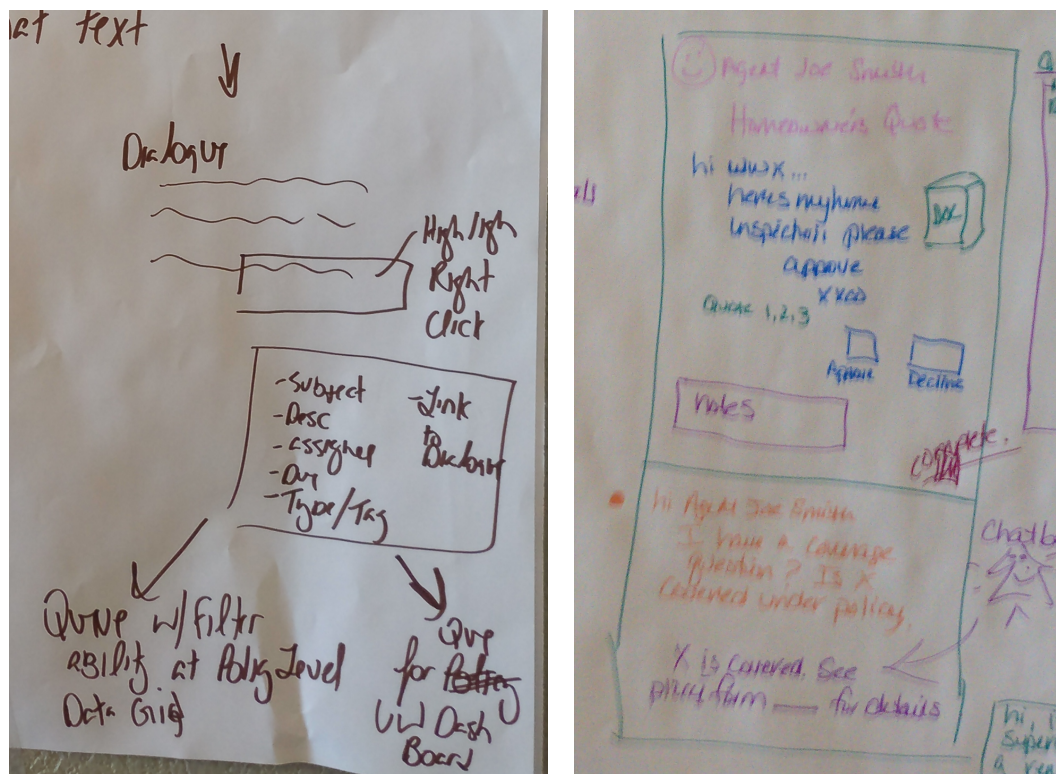 at text
Dialogue
Highligh
Right
Click
-Subject
-Desc
-assignee
-Due
-Type/Tag
-Link
to
Dialogue
Queue w/filter
ability at Policy Level
Data Grid
Que
for
UW Dash
Board
Agent Joe Smith
Homeowners Quote
hi wwx...
heres my home
Inspection please
approve
XXOO
DOC
Quote 1,2,3
Approve
Decline
notes
complete.
hi Agent Joe Smith
I have a coverage
question? Is X
covered under policy.
Chatb
X is covered. See
form ___ for details
hi, I
Super
a